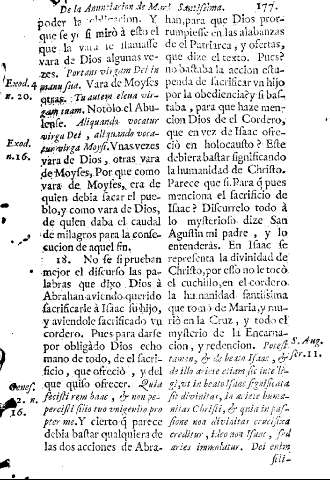 De la Anunciacion de Maria Santissima. 177.
poder la
que se y si miró à esto el
que la vara se llamasse
vara de Dios algunas ve-
zes. Portans virgam Dei in
manu sua. Vara de Moyses
otras. Tu autem eleva vir-
gam tuam. Notólo el Abu-
lense. Aliquando vocatur
virga Dei, aliquando voca-
tur virga Moysi. Vnas vezes
vara de Dios, otras vara
de Moyses, Por que como
vara de Moyses, era de
quien debia sacar el pue-
blo, y como vara de Dios,
de quien daba el caudal
de milagros para la conse-
cucion de aquel fin.
18. No se si prueban
mejor el discurso las pa-
labras que dixo Dios à
Abrahan aviendo querido
sacrificarle à Isaac su hijo,
y aviendole sacrificado vn
cordero. Pues para darse
por obligado Dios echo
mano de todo, de el sacri-
ficio, que ofreciò, y del
que quiso ofrecer. Quia
fecisti rem hanc, & non pe-
percisti filio tuo unigenito pro
pter me. Y cierto q parece
debia bastar qualquiera de
las dos acciones de Abra-
Exod. 4
n. 20.
Exod.
n. 16.
Genes.
22. n.
16.
han, para que Dios pror-
rumpiesse en las alabanzas
de el Patriarca, y ofertas,
que dize el texto. Pues?
no bastaba la accion esta-
penda de sacrificar vn hijo
por la obediencia? y si bas-
taba, para que haze men-
cion Dios de el Cordero,
que en vez de Isaac ofre-
ciò en holocausto? Este
debiera bastar significando
la humanidad de Christo.
Parece que si. Para q pues
menciona el sacrificio de
Isaac? Discurrelo todo à
lo mysterioso dize San
Agustin mi padre, y lo
entenderás. En Isaac se
representa la divinidad de
Christo, por esso no le tocò
el cuchillo, en el cordero
la humanidad santissima
que tomò de Maria, y mu-
riò en la Cruz, y todo el
mysterio de la Encarna-
cion, y redencion. Potest
tamen, & de beato Isaac, &
de illo ariete etiam sic intelli-
gi, ut in beato Isaac significata
sit divinitas, in ariete huma-
nitas Christi, & quia in pas-
sione non divinitas crucifixa
creditur, ideo non Isaac, sed
aries immolatur. Dei enim
filii-
S. Aug.
ser. 11.